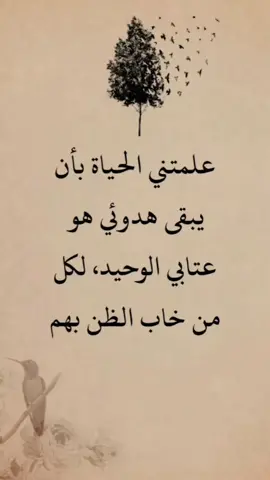 علمتني الحياة بأن
يبقى هدوئي هو
عتابي الوحيد، لكل
من خاب الظن بهم